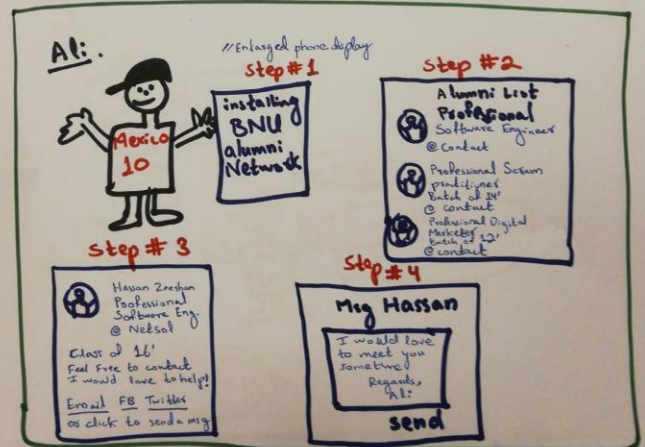 Ali.
//Enlarged phone display
Step #1
installing
BNU
alumni
Network
Mexico
10
Step #2
Alumni List
Professional
Software Engineer
@ contact
Professional Scrum
pratitioner
Batch of 14'
@ contact
Professional Digital
Marketer
Batch of 12'
@ contact
Step # 3
Hassan Zeeshan
Professional
Software Eng.
@ Netsol
Class of 16'
Feel Free to contact
I would love to help!
Email FB Twitter
or click to send a msg
Step #4
Msg Hassan
I would love
to meet you
sometime
Regards,
Ali
send